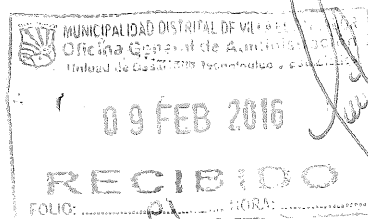 MUNICIPALIDAD DISTRITAL DE
Oficina General de Administración
Unidad de
09 FEB 2016
RECIBIDO
FOLIO: 01 HORA: